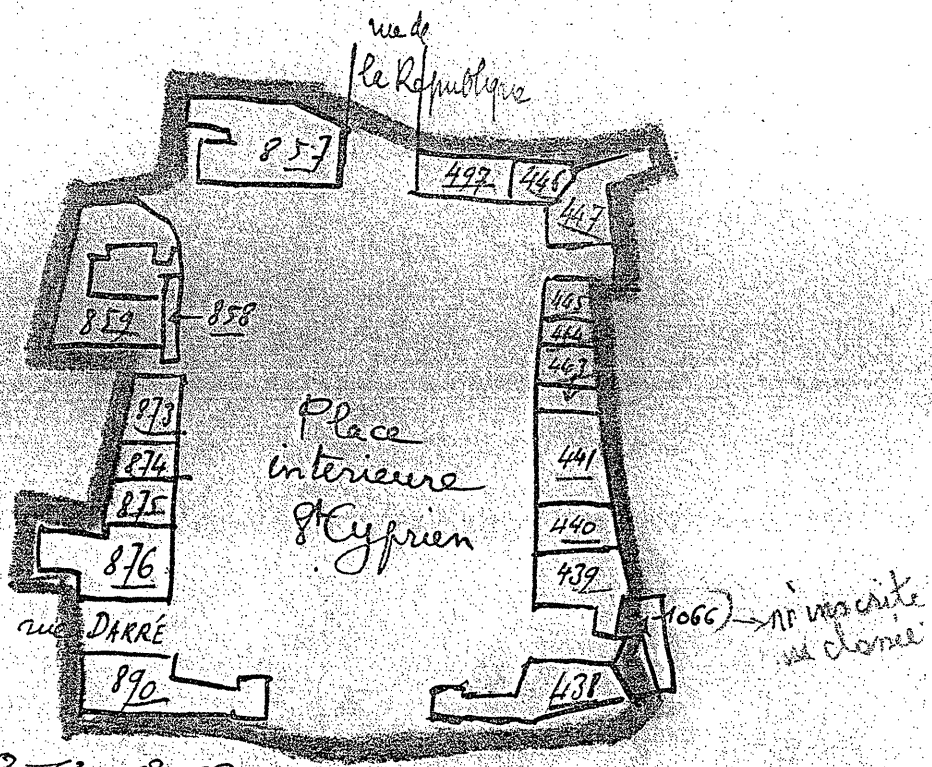 rue de
la République
857
497
446
447
859
858
445
444
443
873
874
875
876
Place
intérieure
St Cyprien
441
440
439
1066) → ni inscrite
ni classée
rue DARRÉ
890
438